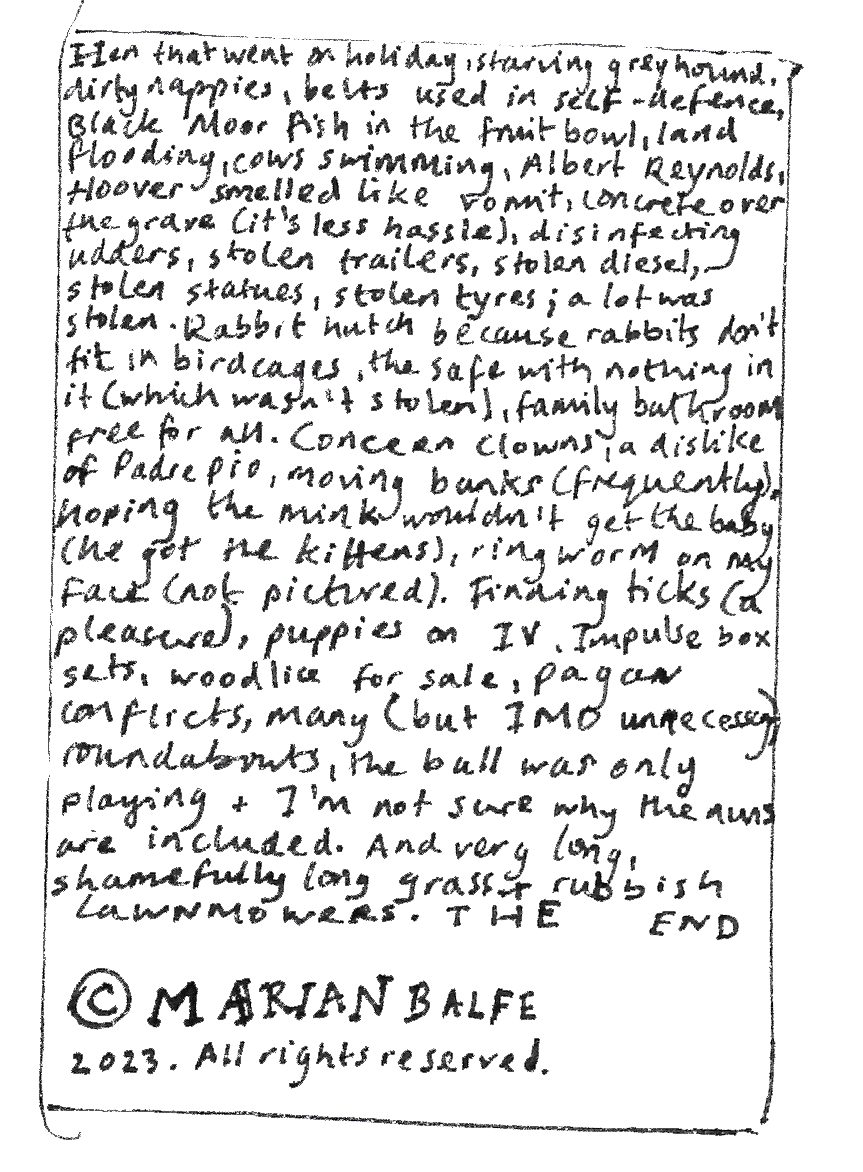 Hen that went on holiday, starving greyhound,
dirty nappies, belts used in self-defence,
Black Moor fish in the fruit bowl, land
flooding, cows swimming, Albert Reynolds,
Hoover smelled like vomit, concrete over
the grave (it's less hassle), disinfecting
udders, stolen trailers, stolen diesel,
stolen statues, stolen tyres; a lot was
stolen. Rabbit hutch because rabbits don't
fit in birdcages, the safe with nothing in
it (which wasn't stolen), family bathroom
free for all. Concern clowns, a dislike
of Padre Pio, moving banks (frequently),
hoping the mink wouldn't get the baby
(he got the kittens), ringworm on my
face (not pictured). Finding ticks (a
pleasure), puppies on IV. Impulse box
sets, woodlice for sale, pagan
conflicts, many (but IMO unnecessary)
roundabouts, the bull was only
playing + I'm not sure why the nuns
are included. And very long,
shamefully long grass + rubbish
LAWNMOWERS. THE END
© MARIAN BALFE
2023. All rights reserved.